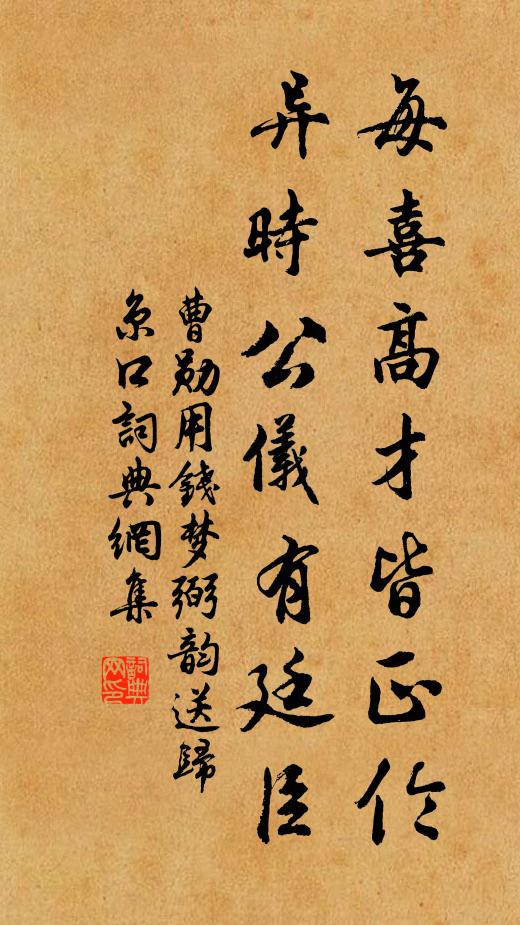 每喜高才皆正
异時公儀有廷臣
曹勋用錢梦弼韵送歸
京口詞典網集
詞典网印